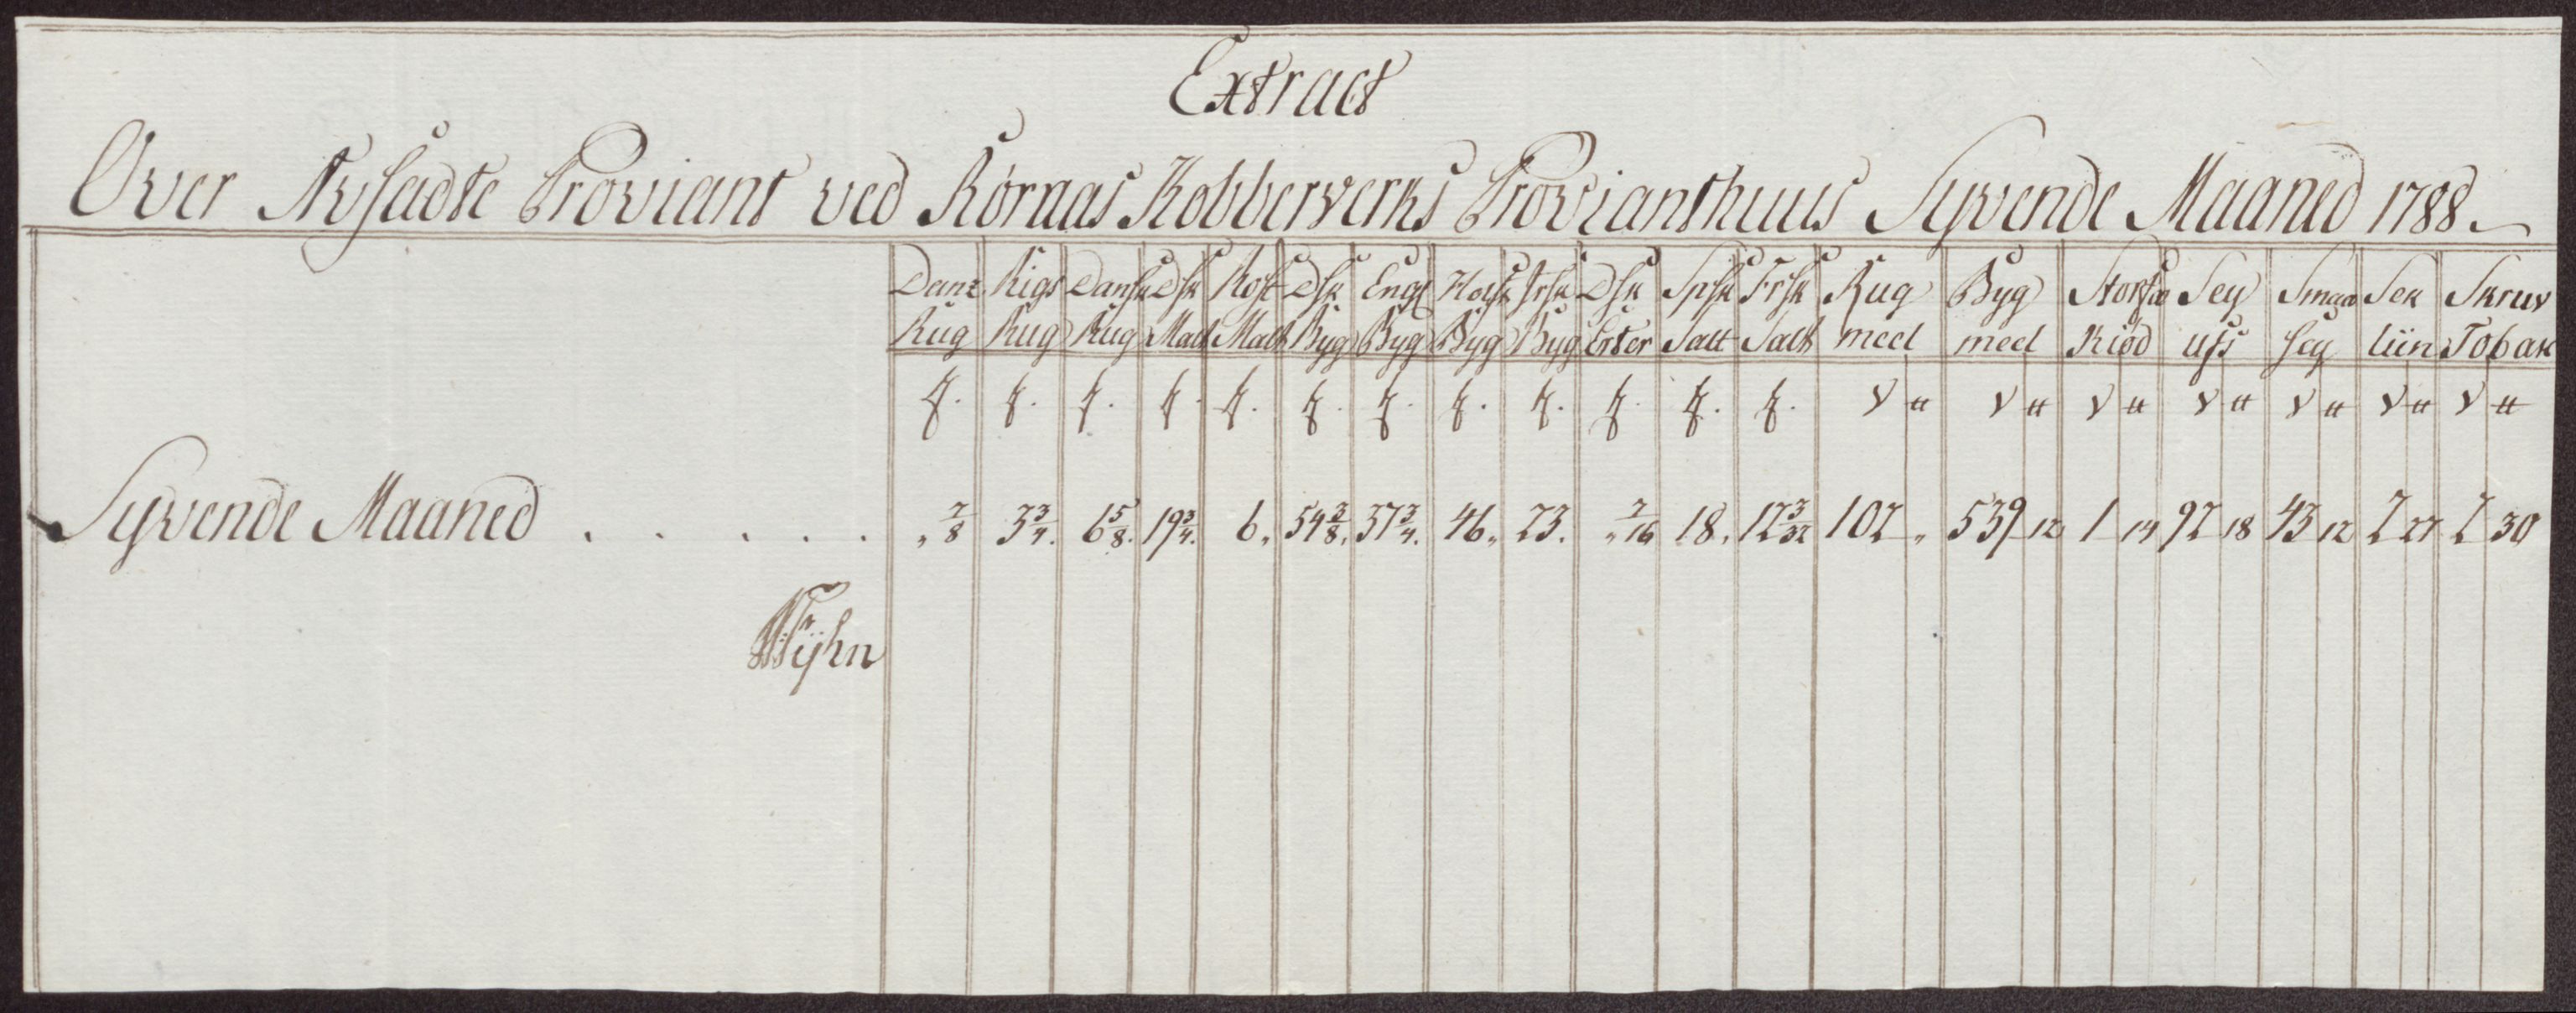 Extract
Over Avsadte Proviant ved Röraas Kobberverks Provianthuus Syvende Maaned 1788.
Danz Rigs Dansk Dsk Rost Dsk Engl Holsk Irsk Dsk Spsk Frsk Rug Byg Sey Smaa Sek Skruv
Rug Rug Rug Malt Malt Byg Byg Byg Byg Erter Salt Salt meel meel Kiöd ufs sey liin Tobak
Syvende Maaned . . . . . „ 7/8 3 3/4. 6 5/8. 19 3/4. 6„ 54 3/8. 37 3/4. 46„ 23. „ 7/16 18. 12 3/32 102 „ 539 12 1 14 92 18 43 12 2 27 2 30
Wijhn